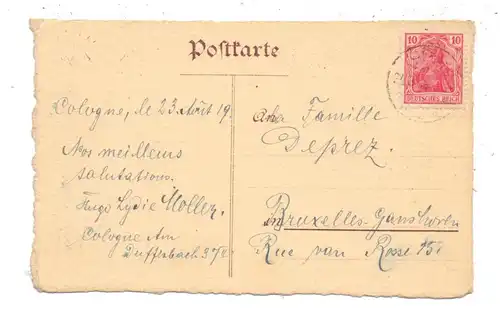 Postkarte
10 10
DEUTSCHES REICH
Cologne, le 23 Août 19
Nos meilleurs
salutations.
Hugo Lydie Möller.
Cologne Am
Duffesbach 37/
An Familie
Deprez.
in Bruxelles-Ganshoren
Rue van